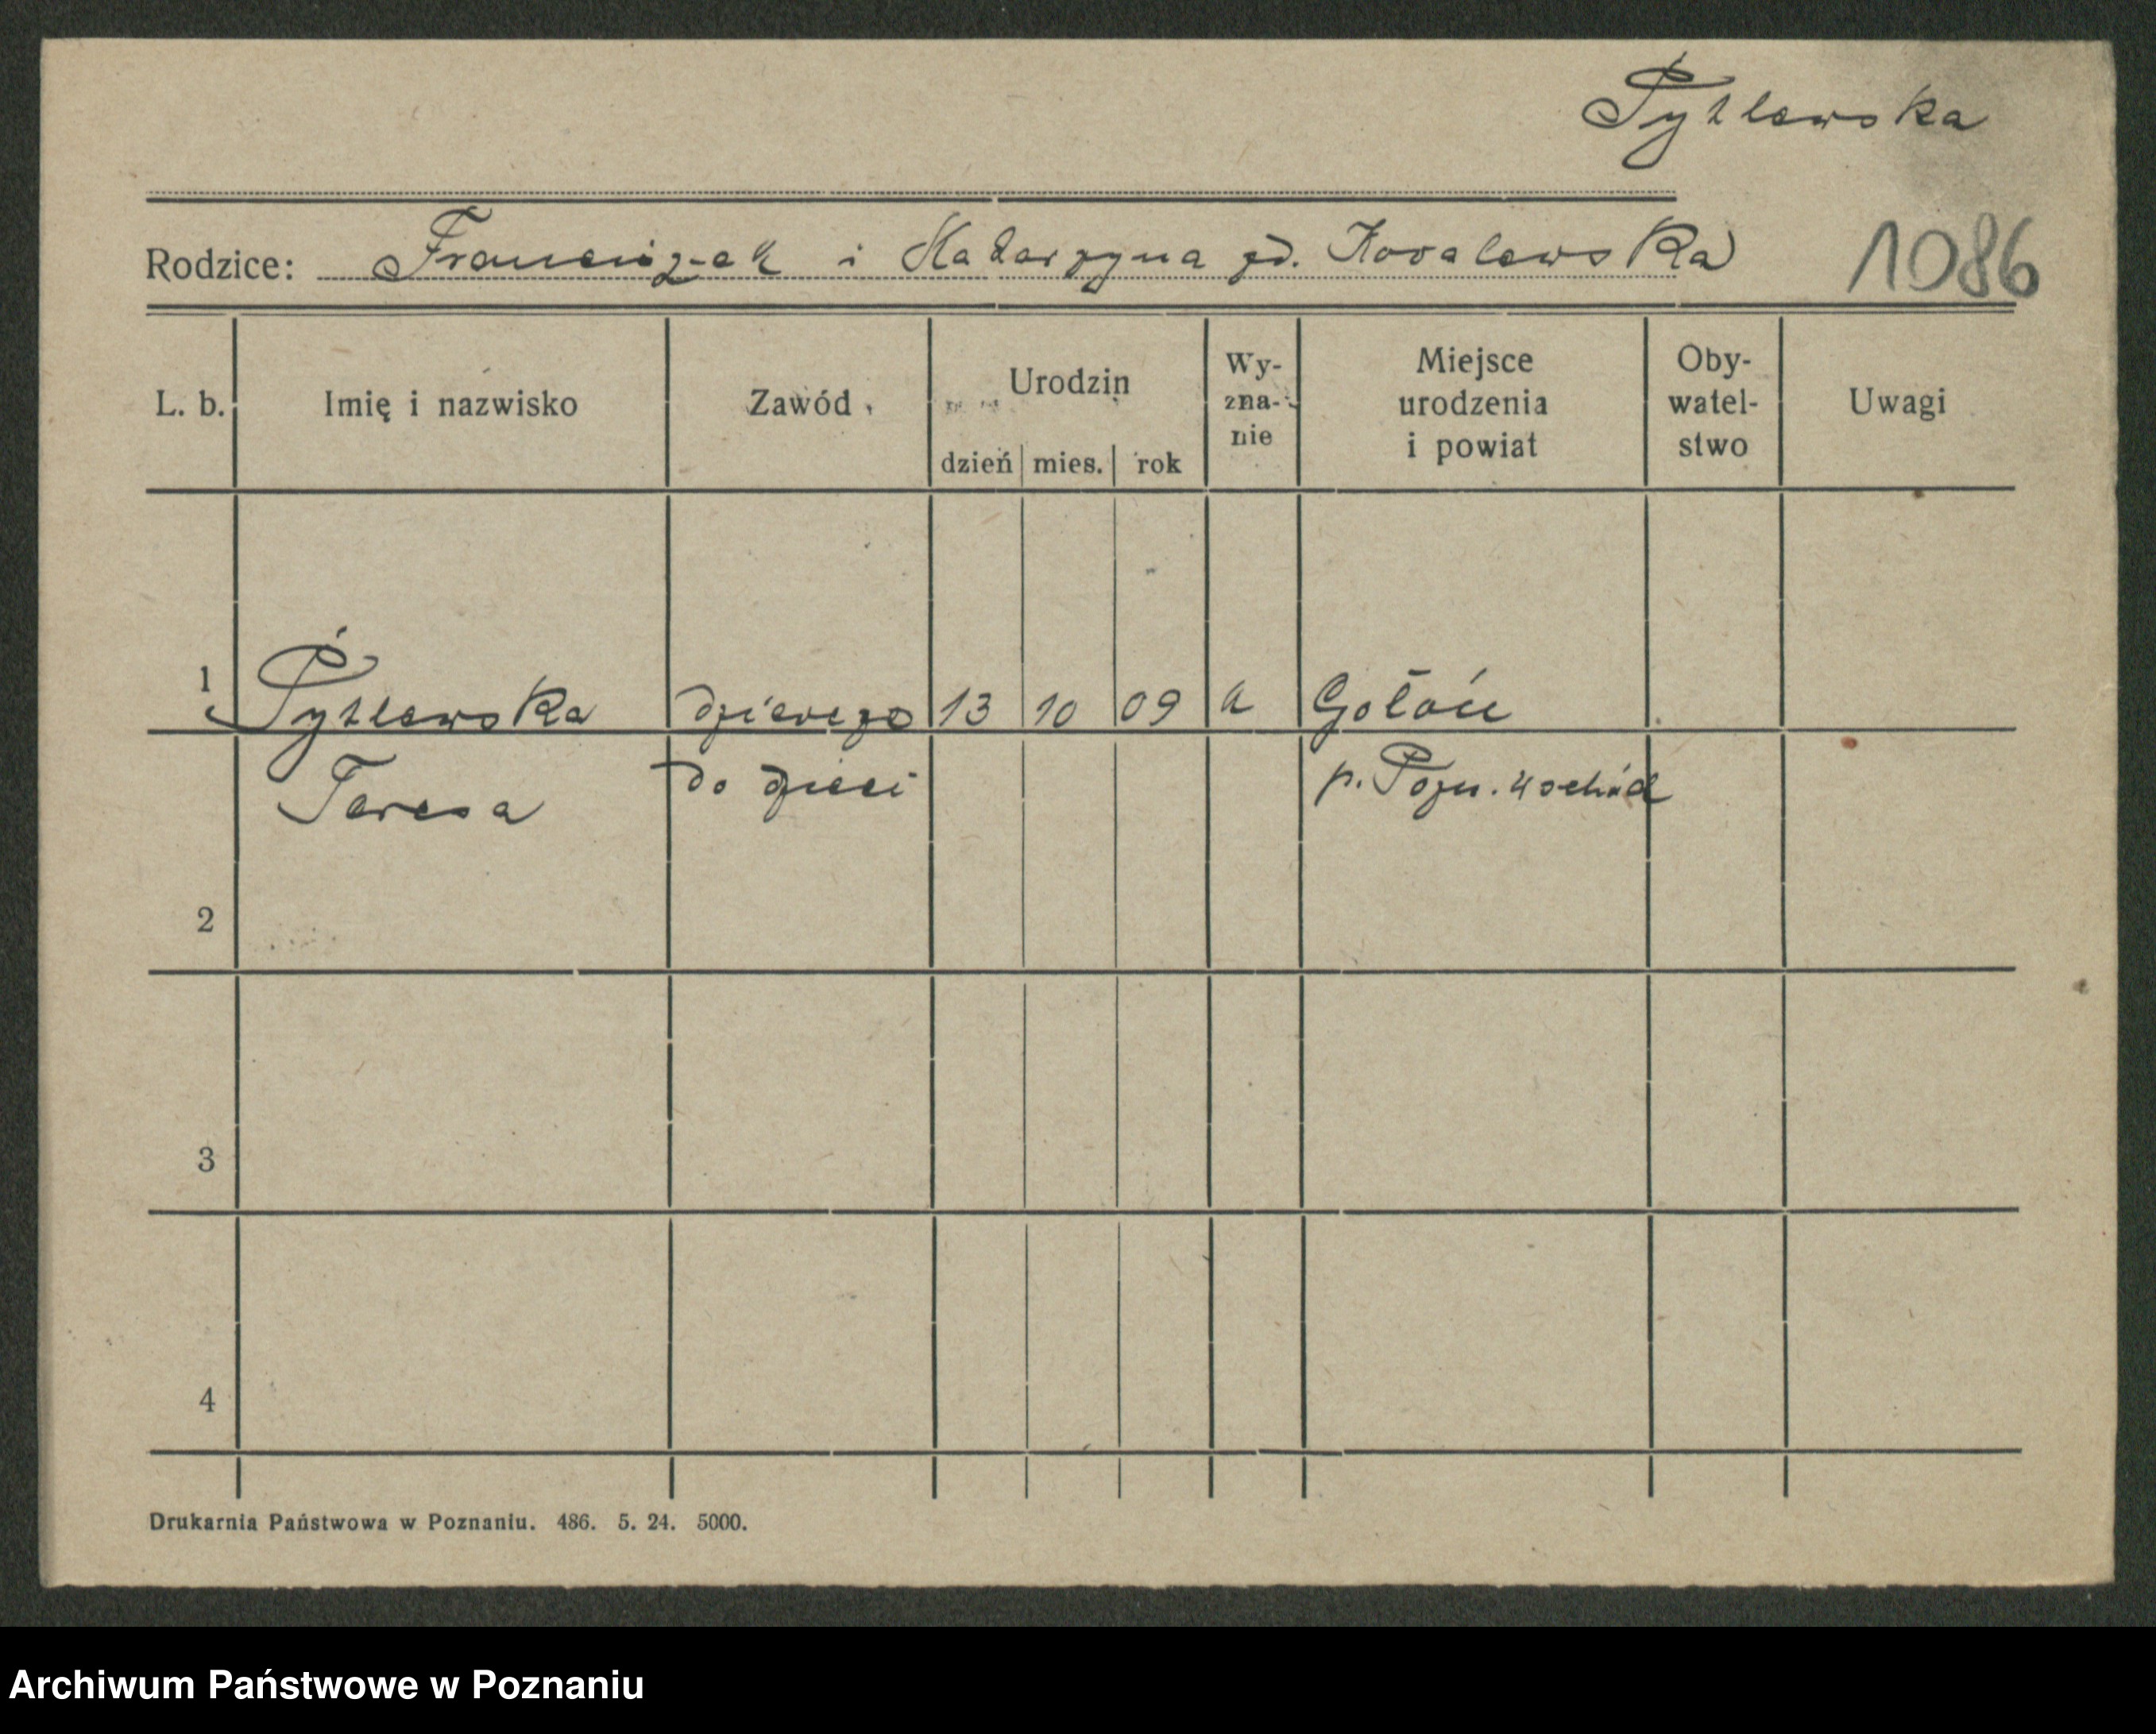 Pytlewska
Rodzice: Franciszek i Katarzyna zd. Kovalewska 1086
L. b. Imię i nazwisko Zawód Urodzin dzień mies. rok Wy-zna-nie Miejsce urodzenia i powiat Oby-watel-stwo Uwagi
1 Pytlewska 13 10 09 k
Teresa do dzieci p. Pozn. wschód
2
3
4
Drukarnia Państwowa w Poznaniu. 486. 5. 24. 5000.
Archiwum Państwowe w Poznaniu